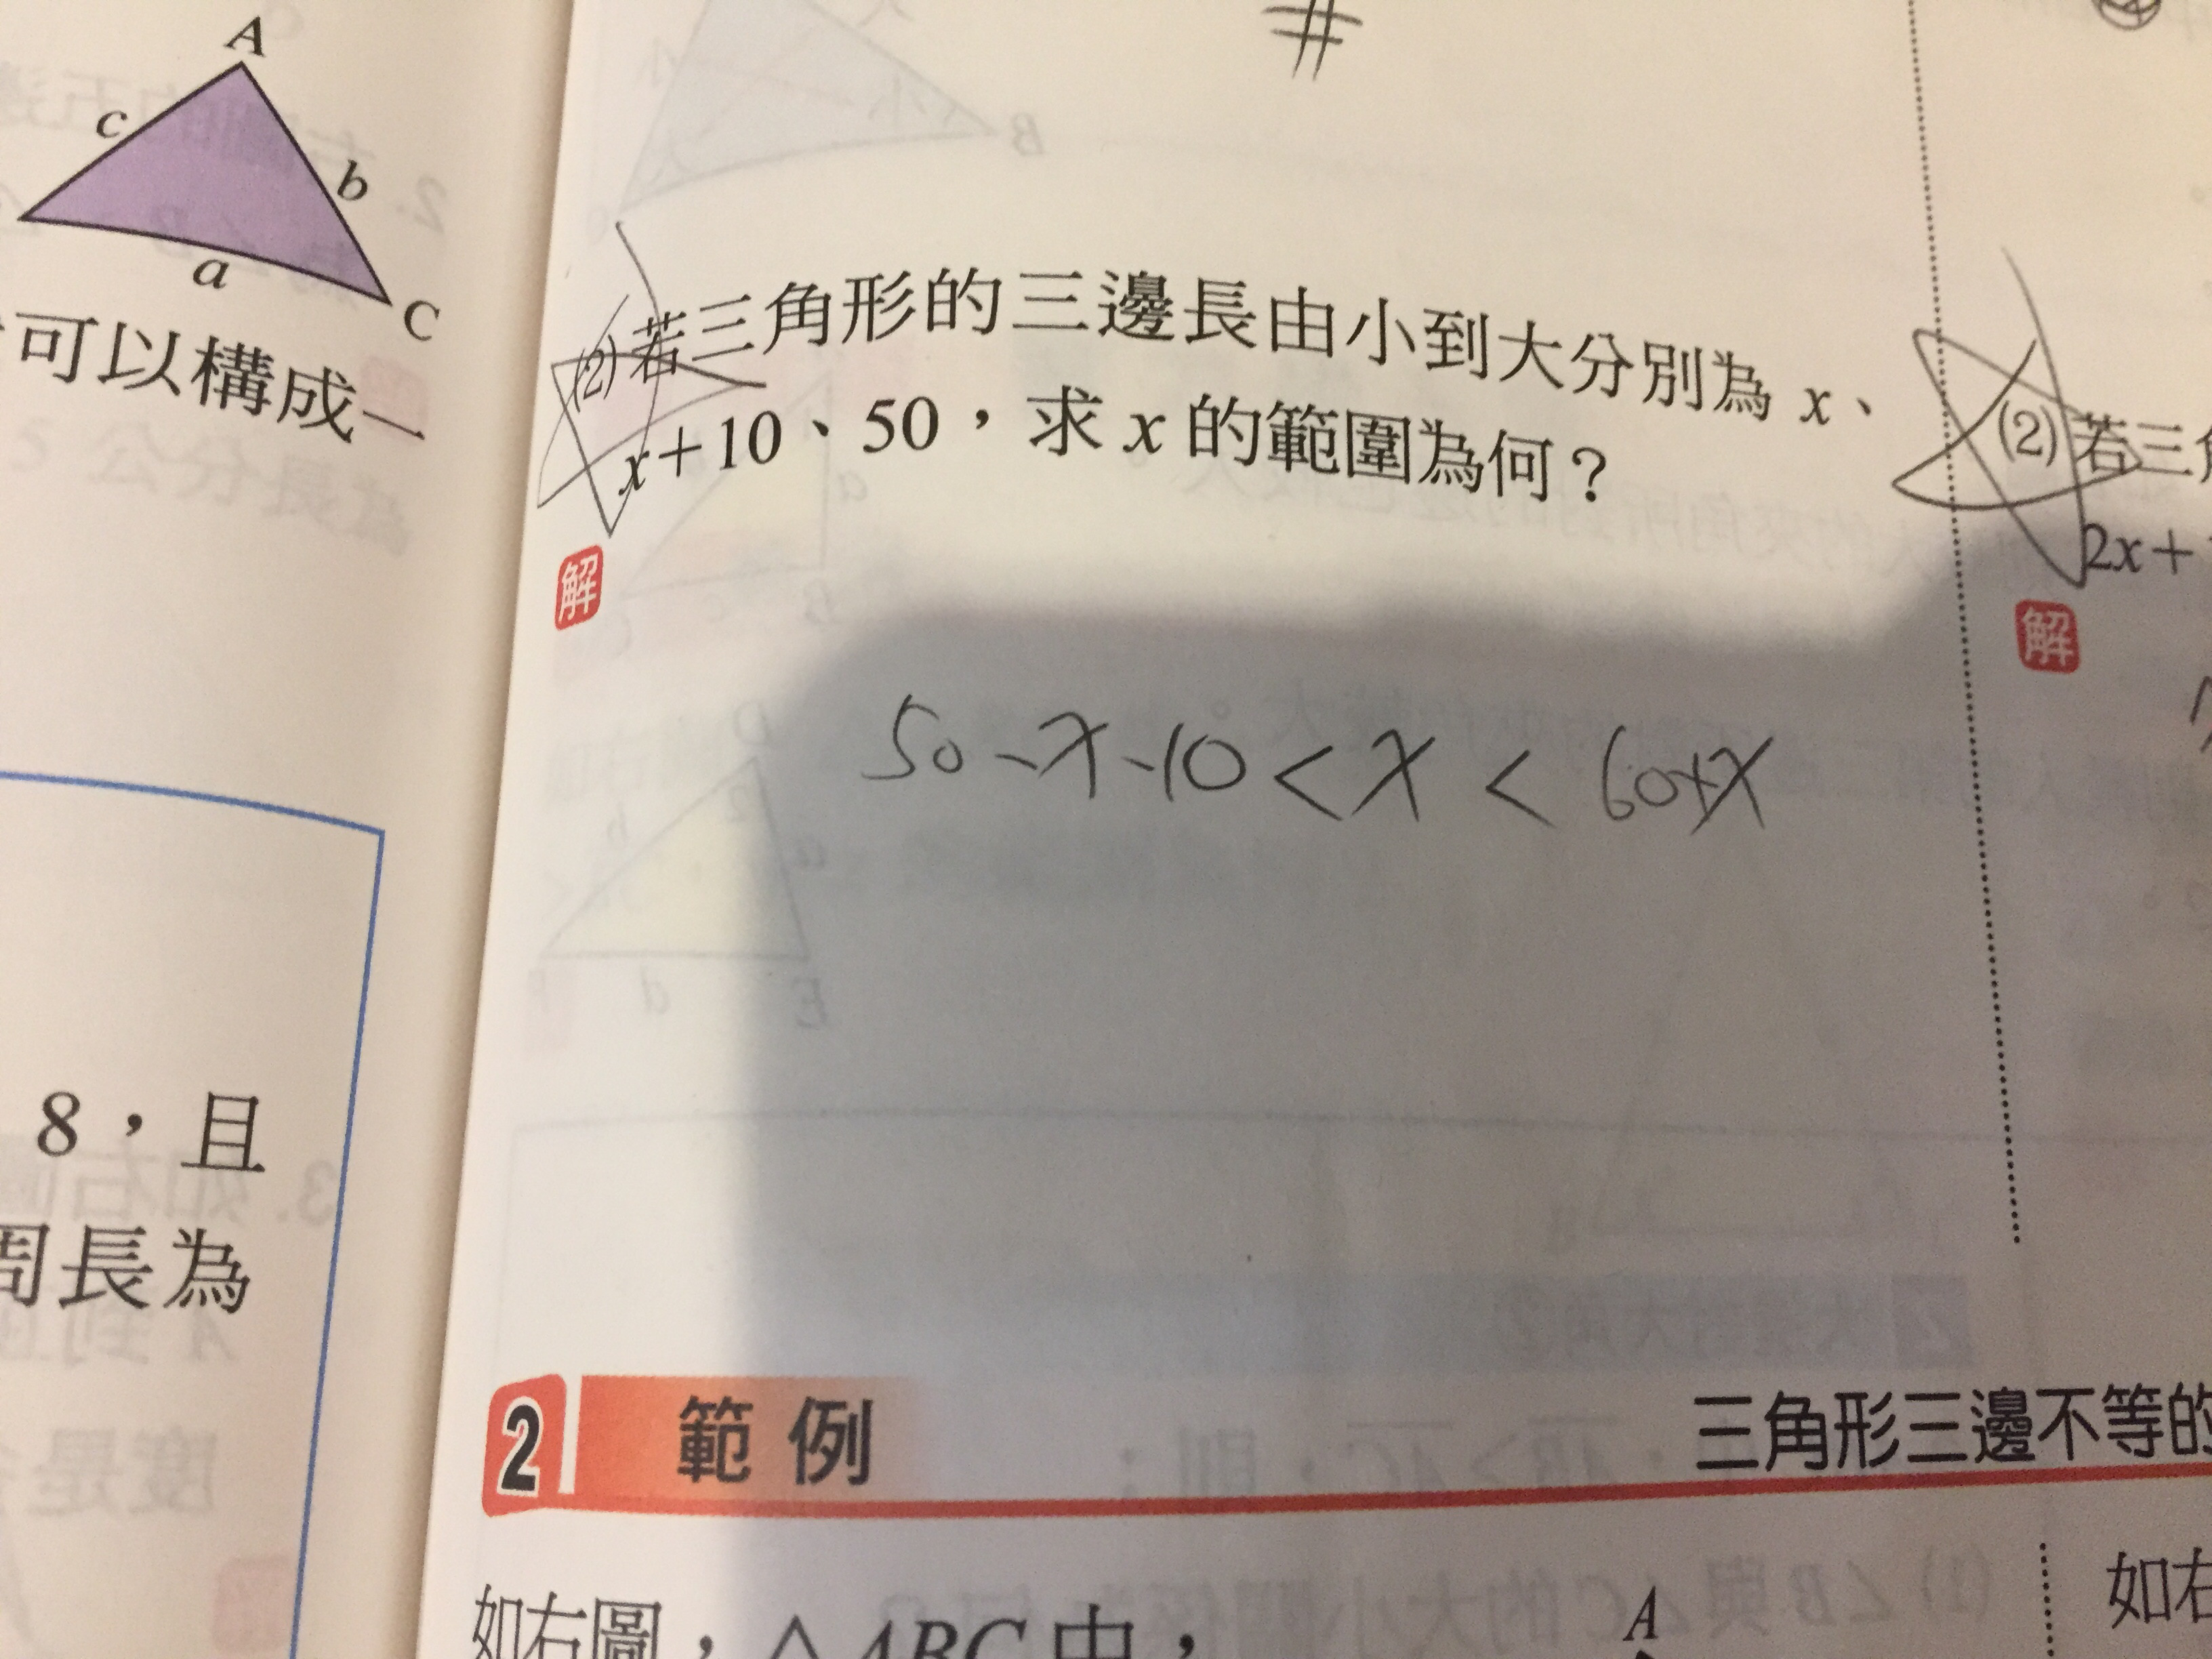 A
c
b
a
C
可以構成一
8，且
周長為
#
(2) 若三角形的三邊長由小到大分別為 x、
x+10、50，求 x 的範圍為何？
解
50-x-10<x<60+x
2 範例
三角形三邊不等的
如右圖，△ABC中，
A
(2) 若三角
2x+
解
如右